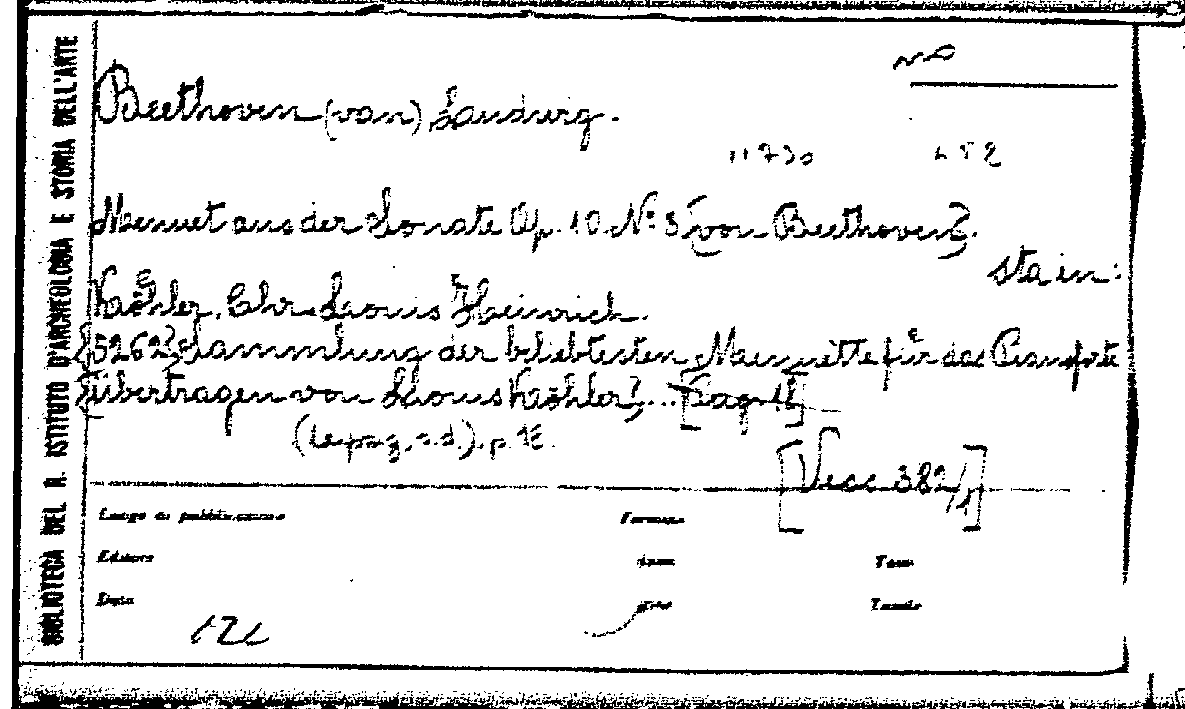 BIBLIOTECA DEL R. ISTITUTO D'ARCHEOLOGIA E STORIA DELL'ARTE
Beethoven (van) Ludwig.
11730
Menuet aus der Sonate Op. 10 Nº 3 [von Beethoven].
sta in:
Köhler, Chr. Louis Heinrich.
[5262] Sammlung der beliebtesten Menuette für das Pianoforte
[übertragen von Louis Köhler] ... [Pag. 18]
(Leipzig, s.d.), p. 18.
[Vess. 382/1]
Luogo di pubblicazione
Formato
Editore
Data
Tavole